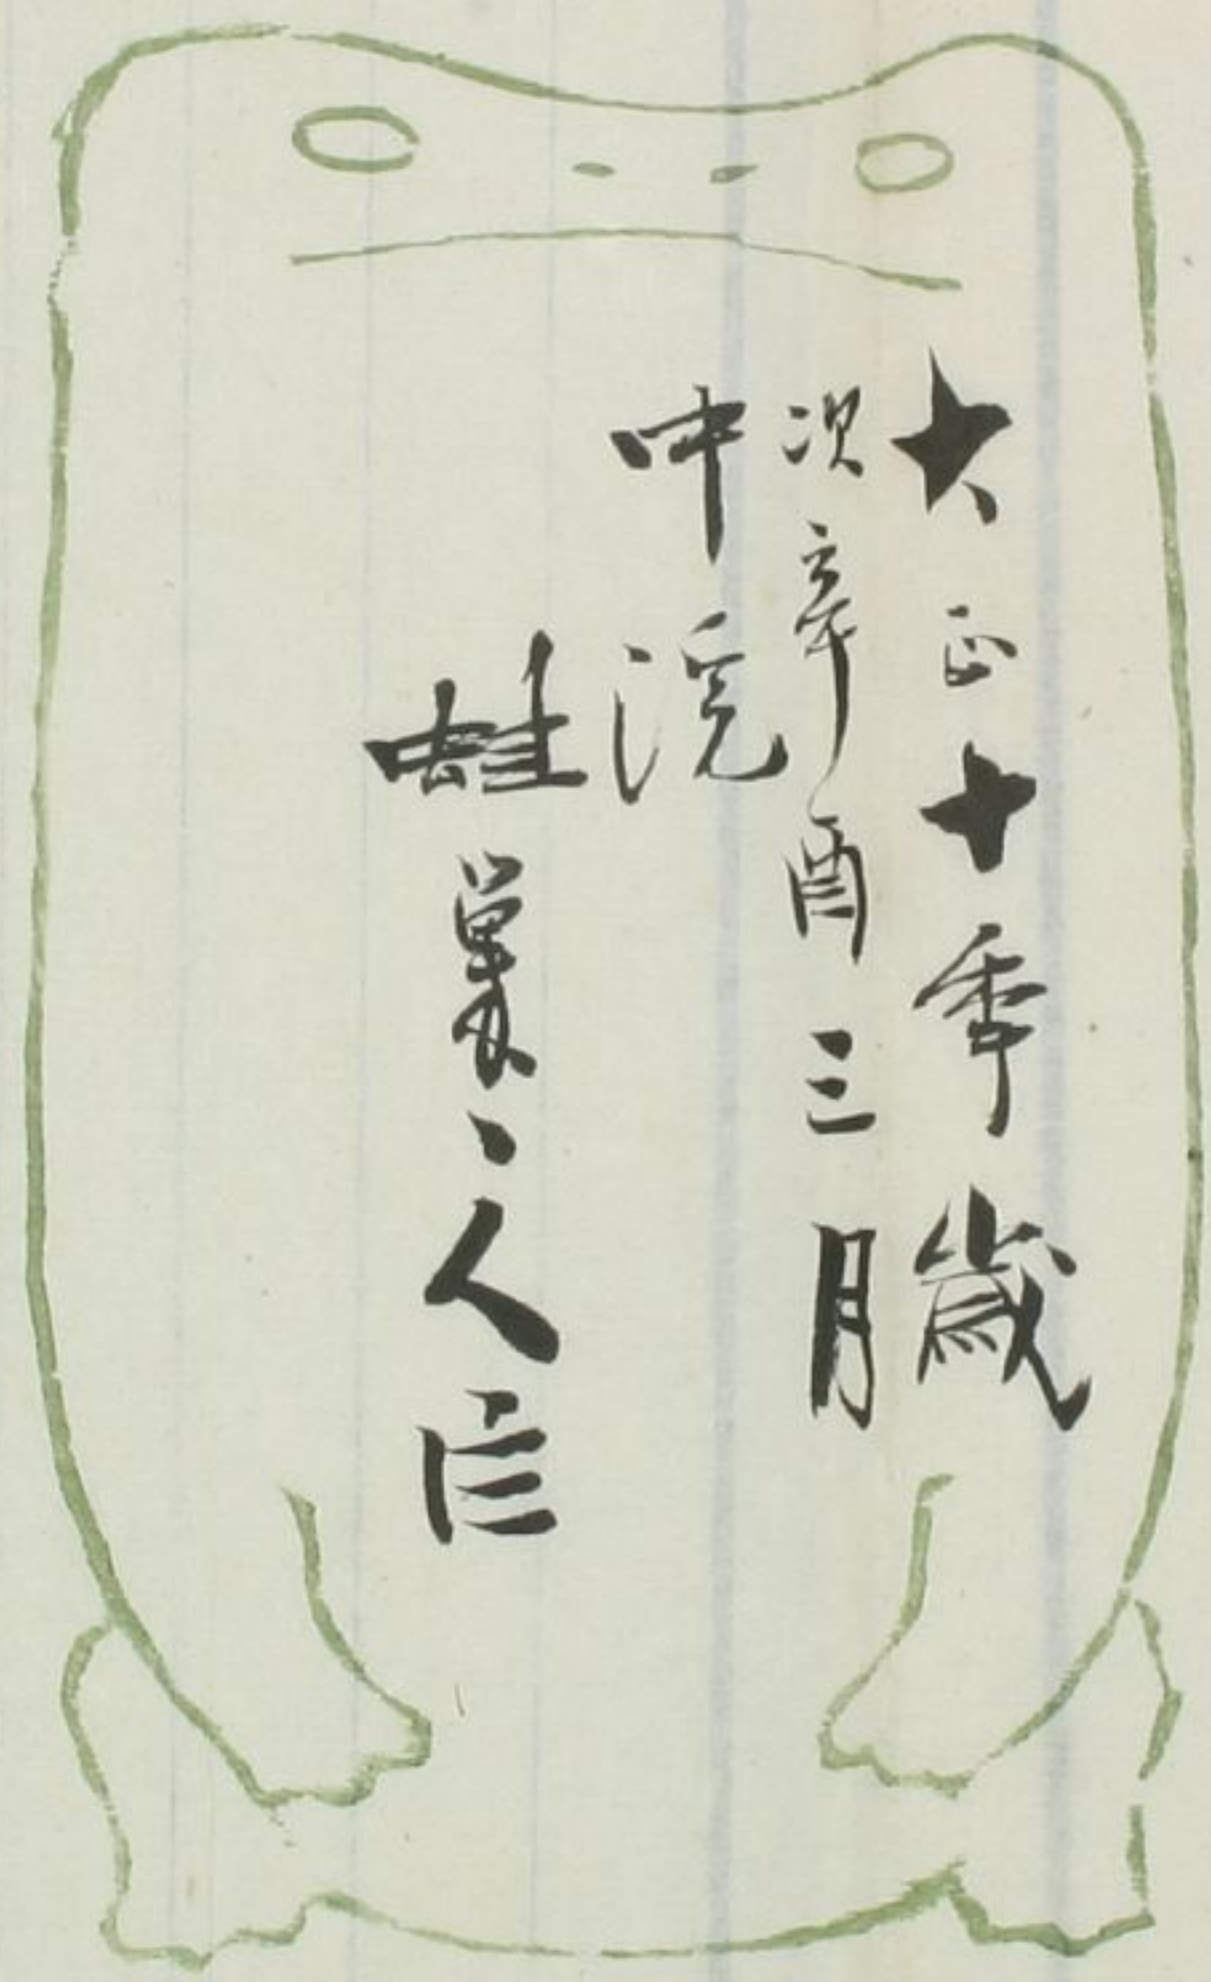 大正十季歳
次辛酉三月
中浣
蛙巣、人㐰